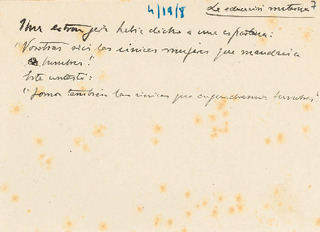 4/19/8
La educación materna 7
Una extranjera había dicho a una espartana:
Vosotras sois las únicas mujeres que mandan a
hombres!
Esta contestó:
"Somos también las únicas que engendramos hombres!